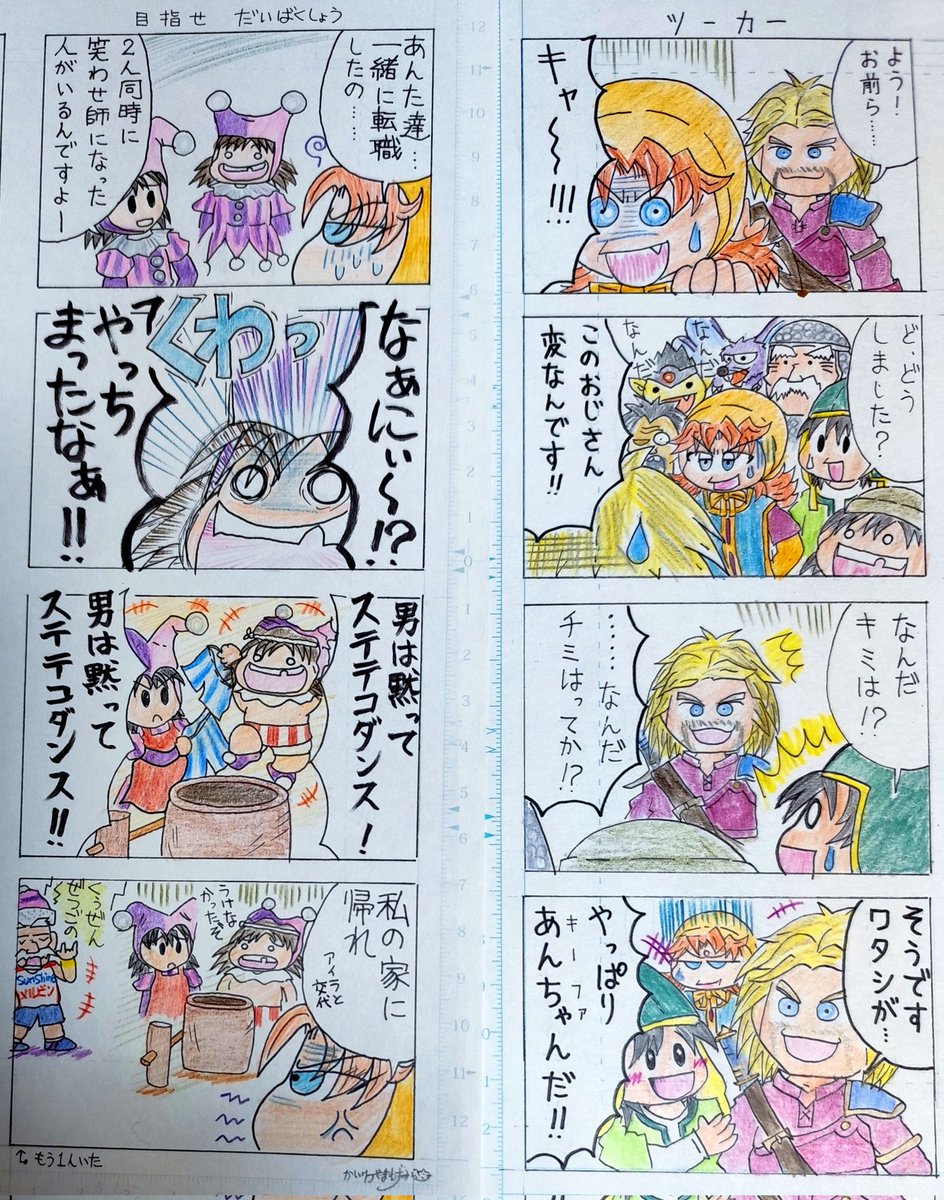 ツーカー
よう！
お前ら…
キャ〜〜!!!
ど、どう
しました？
なんだ
なんだ
このおじさん
変なんです!!
なんだ
キミは!?
……なんだ
チミはってか!?
そうです
ワタシが…
やっぱり
キーファ
あんちゃんだ!!
目指せ だいばくしょう
あんた達…
一緒に転職
したの……
2人同時に
笑わせ師になった
人がいるんですよー
なぁにぃ〜!?
くわっ
やっち
まったなぁ!!
男は黙って
ステテコダンス！
男は黙って
ステテコダンス!!
私の家に
帰れ
アイラと
交代
うけな
かったぞ
くうぜん
ぜつごの
Sunshine
メルビン
もう1人いた